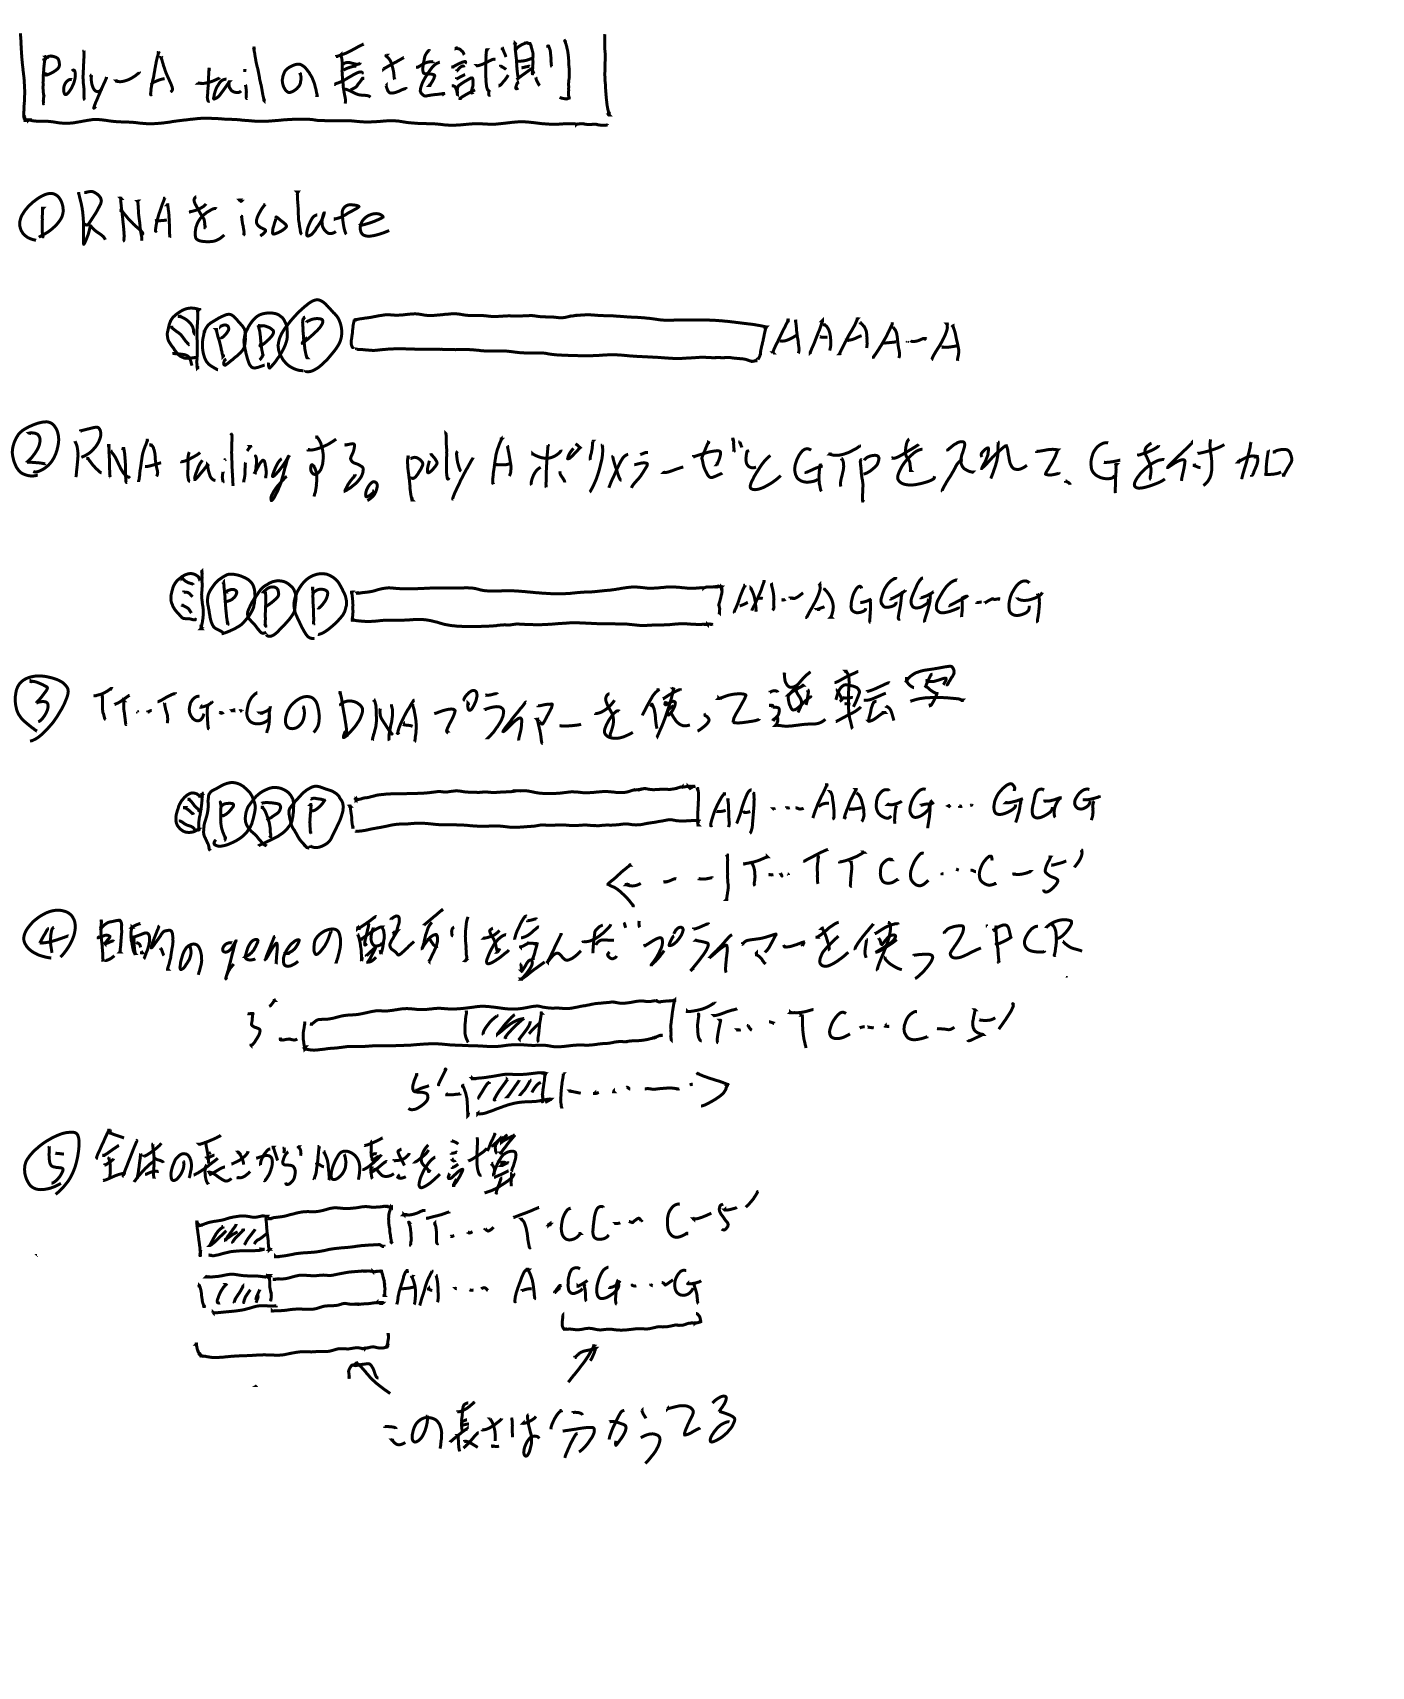 Poly-A tailの長さを計測
①RNAをisolate
PPP AAAA-A
②RNA tailingする。polyAポリメラーゼとGTPを入れて、Gを付加
PPP AA…AGGGG…G
③ TT…TG…GのDNAプライマーを使って逆転写
PPP AA…AAGG…GGG
←--T…TTCC…C-5'
④目的のgeneの配列を含んだプライマーを使ってPCR
3'- TT…TC…C-5'
5'- …→
⑤全体の長さからAの長さを計算
TT…T・CC…C-5'
AA…A・GG…G
この長さは分かってる